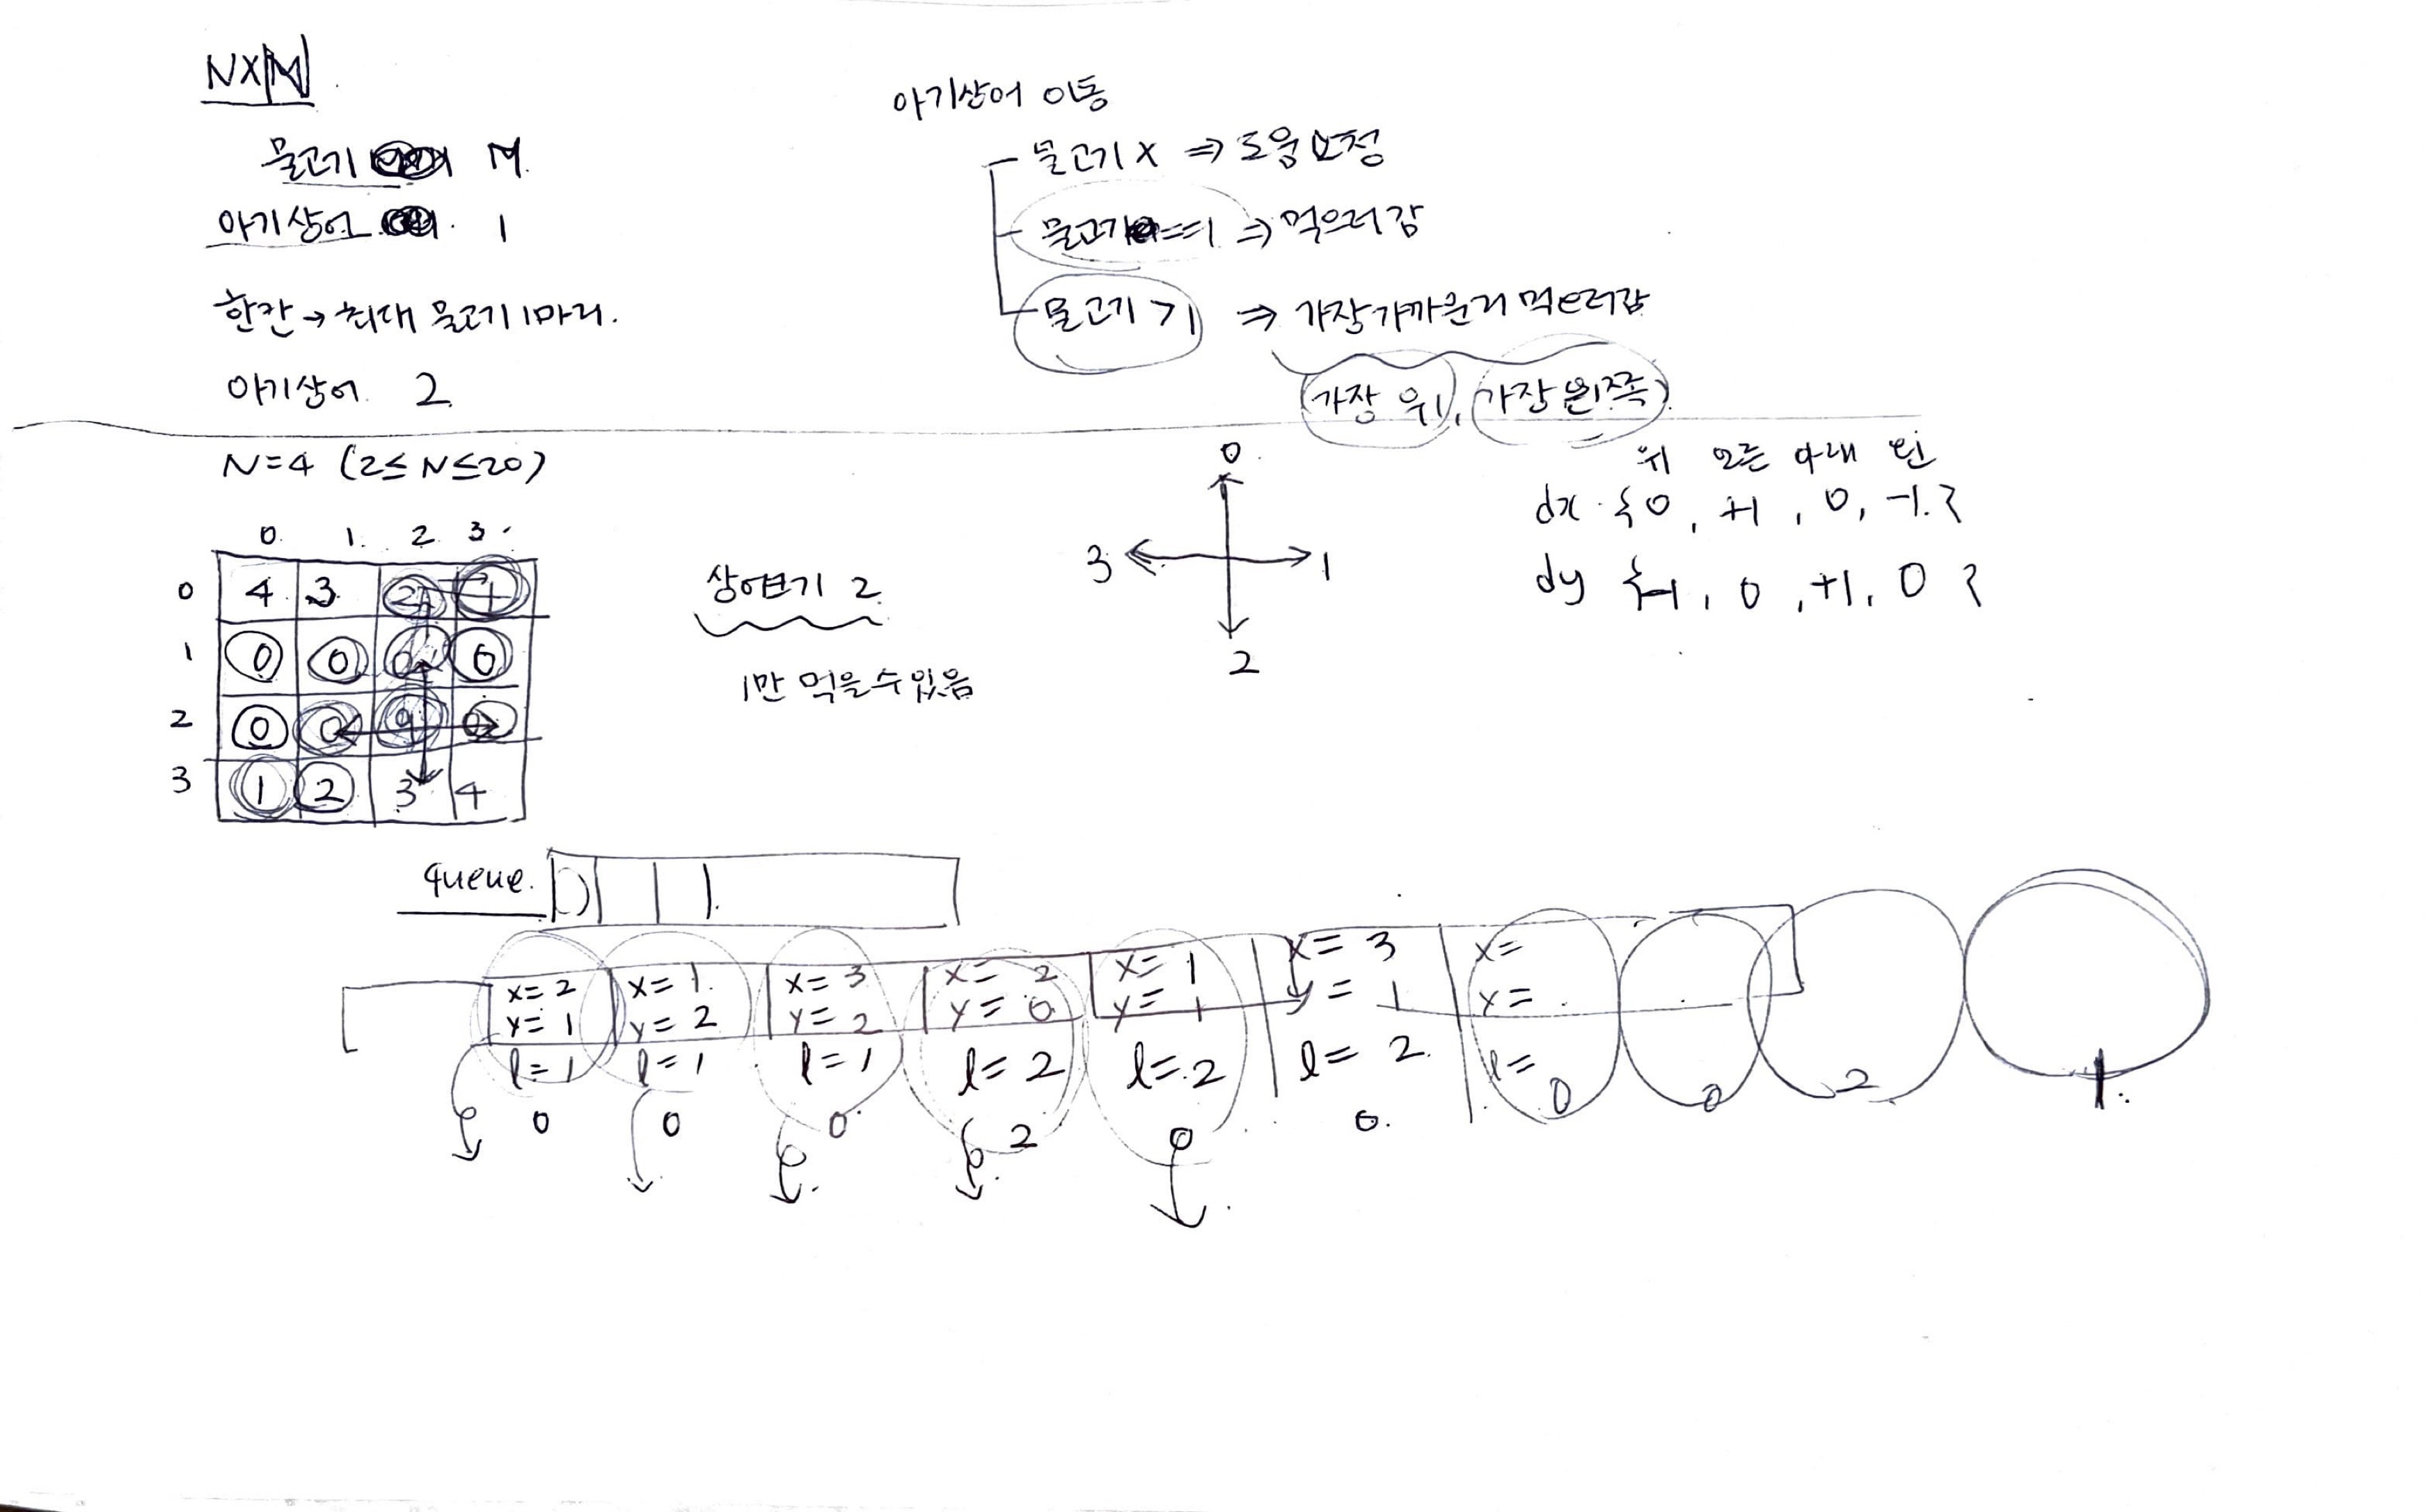 N×N
물고기 M
아기상어 1
한칸→최대 물고기 1마리.
아기상어 2
아기상어 이동
물고기 X ⇒ 도움요청
물고기 ==1 ⇒ 먹으러감
물고기 >1 ⇒ 가장가까운거 먹으러감
가장 위, 가장 왼쪽
N=4 (2≤N≤20)
0 1 2 3
0 4 3 2 1
1 0 0 0 0
2 0 0 9 0
3 1 2 3 4
상어크기 2
1만 먹을 수 있음
0
3 1
2
위 오른 아래 왼
dx {0, +1, 0, -1}
dy {-1, 0, +1, 0}
queue
x=2 x=1 x=3 x=2 x=1 x=3 x=
y=1 y=2 y=2 y=0 y=1 y=1 y=
l=1 l=1 l=1 l=2 l=2 l=2 l=
0 0 0 2 0 0 0 0 2 1